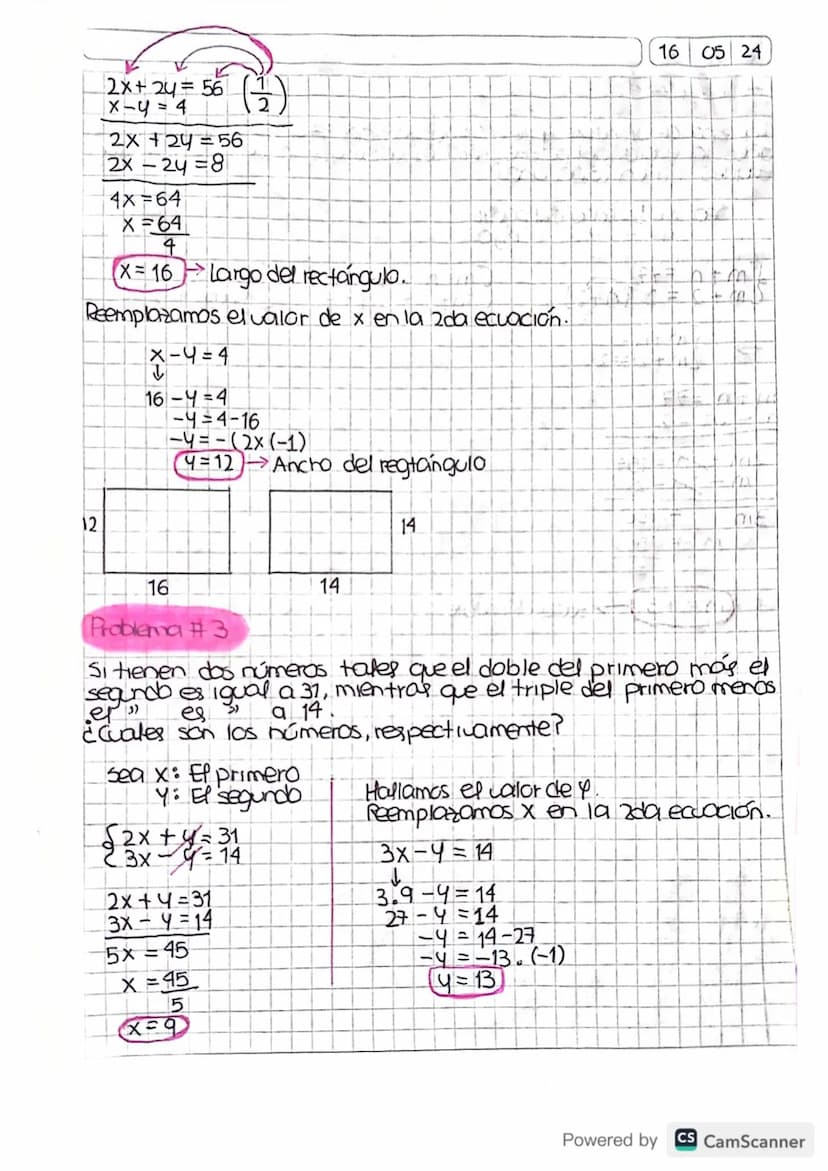 16 05 24
2x + 2y = 56 (1/2)
x - y = 4
2x + 2y = 56
2x - 2y = 8
4x = 64
x = 64
4
x = 16 → Largo del rectángulo.
Reemplazamos el valor de x en la 2da ecuación.
x - y = 4
↓
16 - y = 4
-y = 4 - 16
-y = -12x (-1)
y = 12 → Ancho del regtángulo
12
14
16
14
Problema # 3
Si tienen dos números tales que el doble del primero más el
segundo es igual a 31, mientras que el triple del primero menos
el " es " a 14.
¿Cuales son los números, respectivamente?
Sea x: El primero
y: El segundo
{2x + y = 31
3x - y = 14
2x + y = 31
3x - y = 14
5x = 45
x = 45
5
x = 9
Hallamos el valor de y.
Reemplazamos x en la 2da ecuación.
3x - y = 14
↓
3.9 - y = 14
27 - y = 14
-y = 14 - 27
-y = -13 . (-1)
y = 13
Powered by CS CamScanner